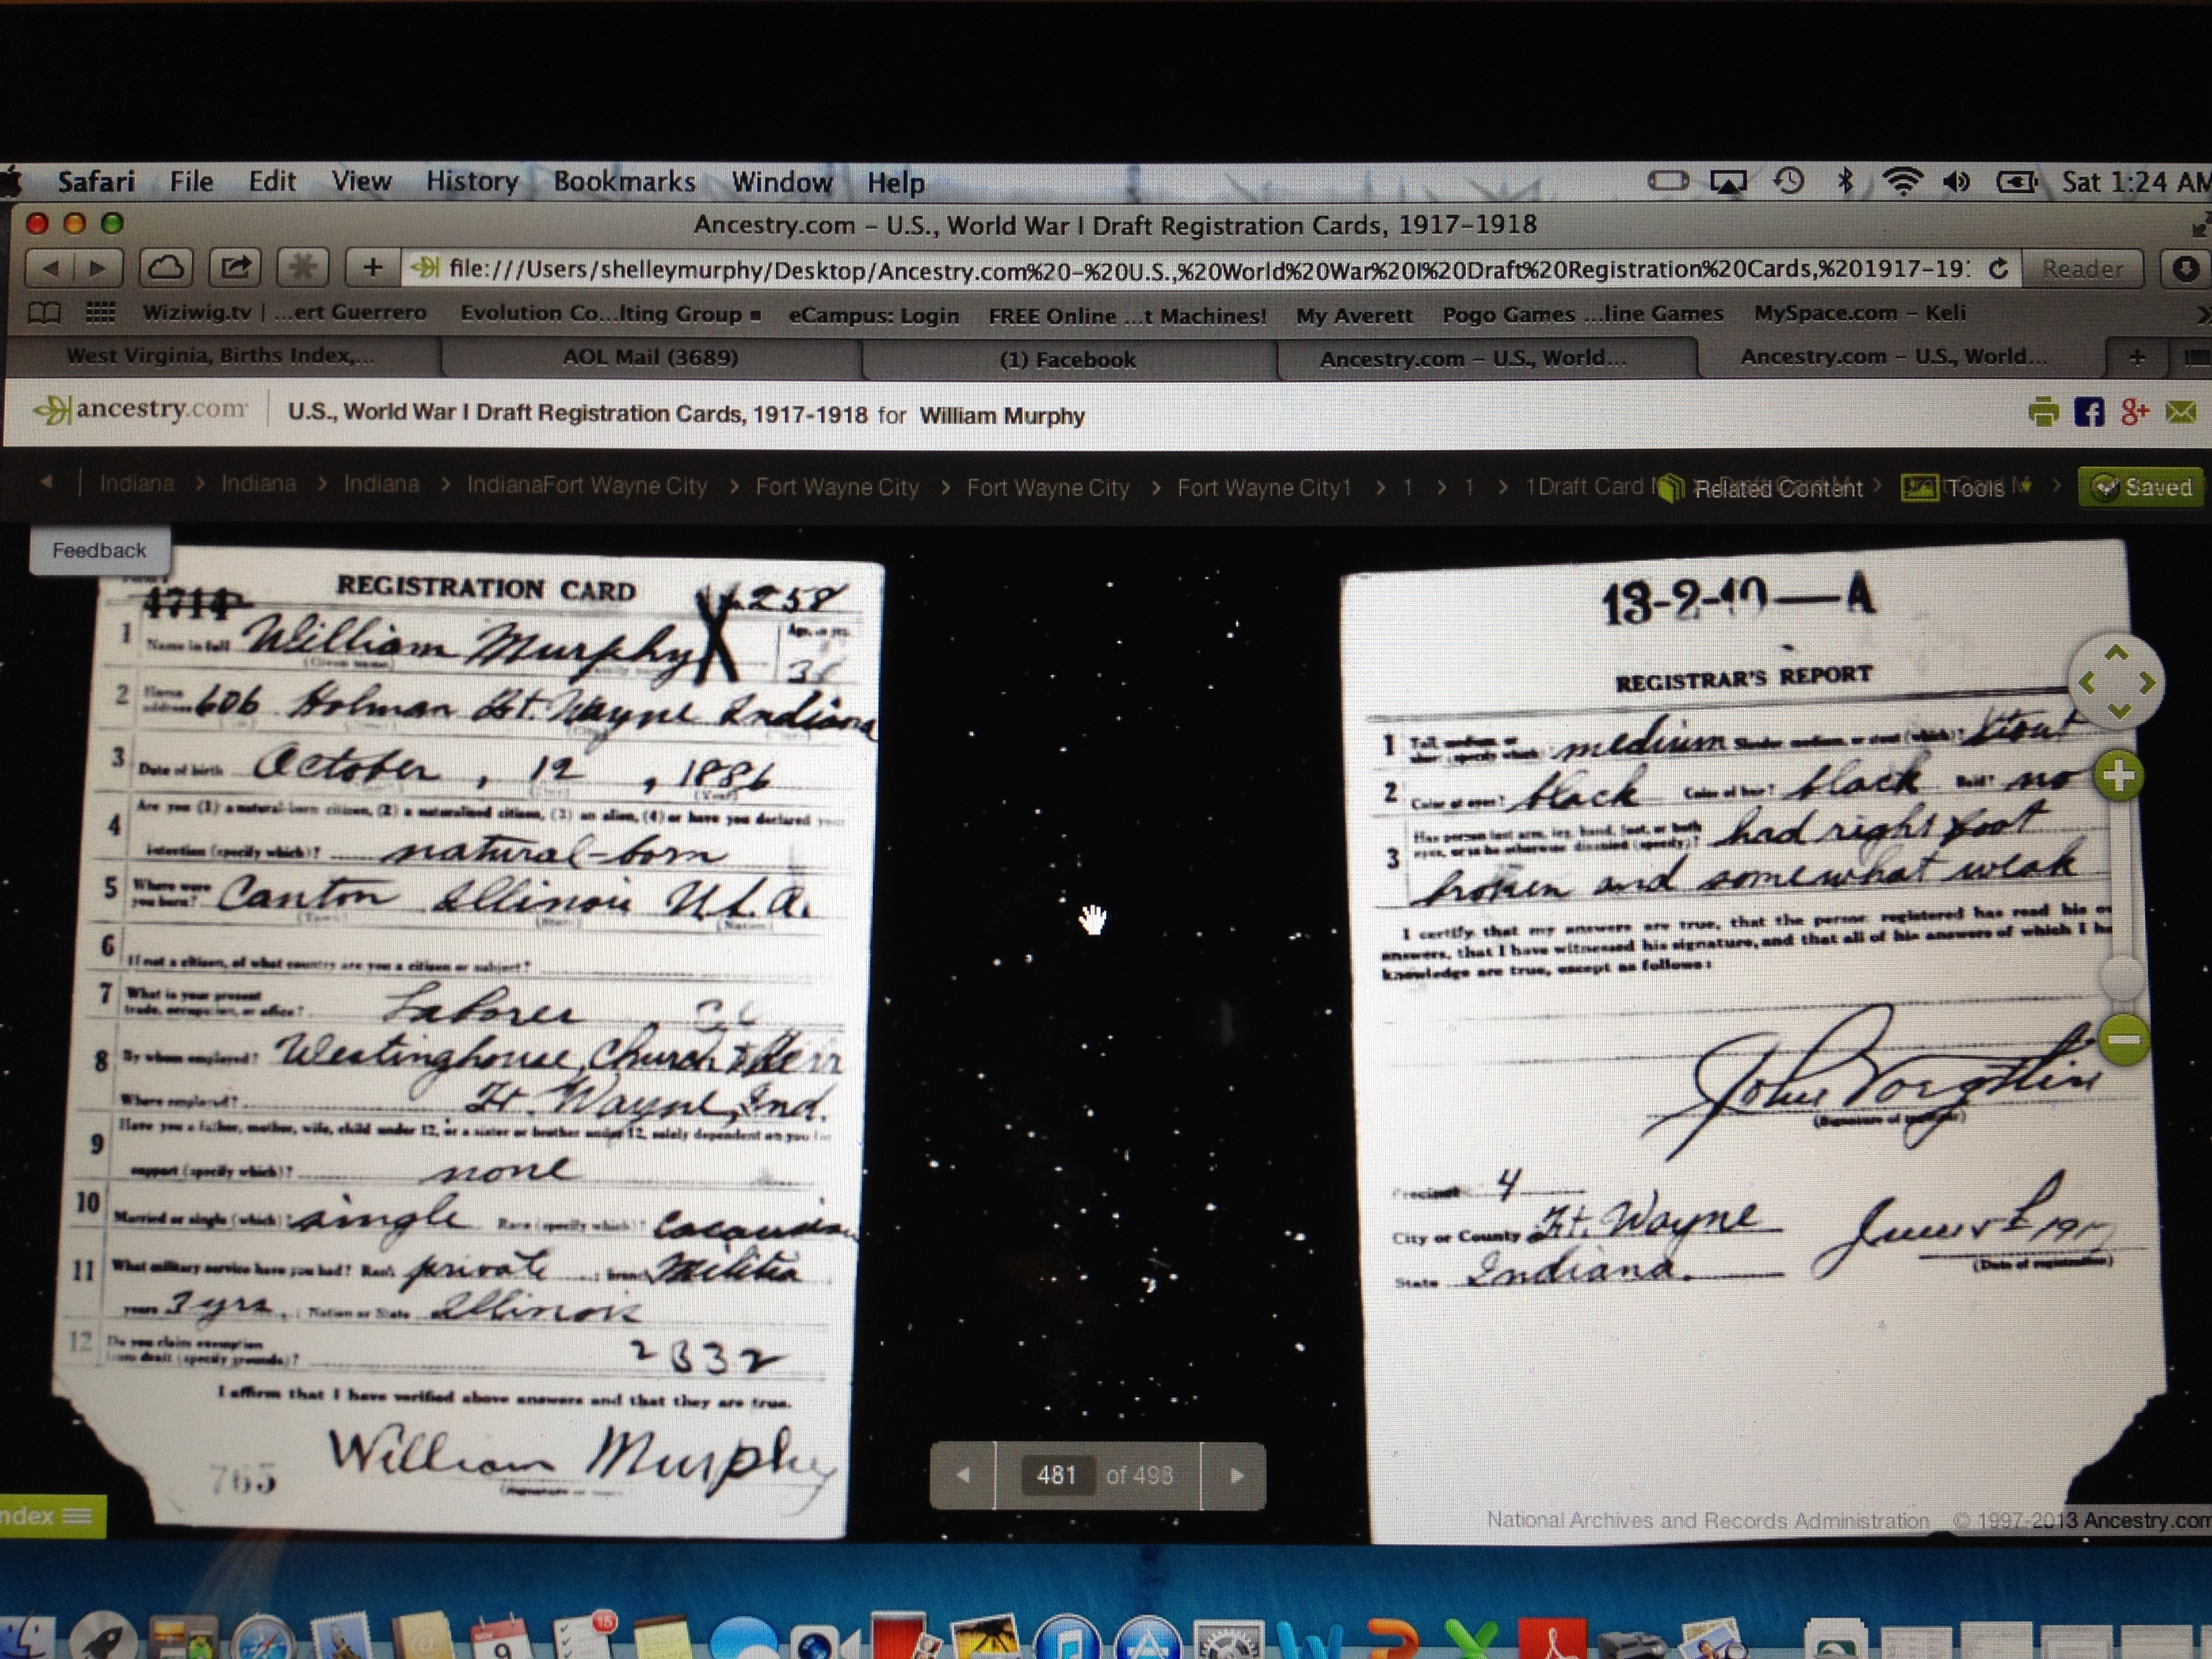 Safari File Edit View History Bookmarks Window Help Sat 1:24 AM
Ancestry.com – U.S., World War I Draft Registration Cards, 1917–1918
file:///Users/shelleymurphy/Desktop/Ancestry.com%20-%20U.S.,%20World%20War%20I%20Draft%20Registration%20Cards,%201917-19 Reader
Wiziwig.tv | ...ert Guerrero Evolution Co...lting Group eCampus: Login FREE Online ...t Machines! My Averett Pogo Games ...line Games MySpace.com – Keli
West Virginia, Births Index,... AOL Mail (3689) (1) Facebook Ancestry.com – U.S., World... Ancestry.com – U.S., World...
ancestry.com U.S., World War I Draft Registration Cards, 1917-1918 for William Murphy
Indiana > Indiana > Indiana > IndianaFort Wayne City > Fort Wayne City > Fort Wayne City > Fort Wayne City1 > 1 > 1 > 1Draft Card Related Content Tools Saved
Feedback
REGISTRATION CARD 258
4714
1 Name in full William Murphy X Age, in yrs.
(Given name)
2 Home address 606 Holman Ft. Wayne Indiana
3 Date of birth October, 12, 1886
(Year)
4 Are you (1) a natural-born citizen, (2) a naturalized citizen, (3) an alien, (4) or have you declared your
intention (specify which)? natural-born
5 Where were you born? Canton Illinois U.S.A.
(Town) (State) (Nation)
6 If not a citizen, of what country are you a citizen or subject?
7 What is your present trade, occupation, or office? Laborer
8 By whom employed? Westinghouse, Church & Kerr
Where employed? Ft. Wayne, Ind.
9 Have you a father, mother, wife, child under 12, or a sister or brother under 12, solely dependent on you for
support (specify which)? none
10 Married or single (which)? single Race (specify which)?
11 What military service have you had? Rank private ; branch Militia
years 3 yrs. ; Nation or State Illinois
12 Do you claim exemption from draft (specify grounds)? 2332
I affirm that I have verified above answers and that they are true.
William Murphy
765
13-2-10—A
REGISTRAR'S REPORT
1 Tall, medium, or short (specify which)? medium Slender, medium, or stout (which)? stout
2 Color of eyes? black Color of hair? black Bald? no
3 Has person lost arm, leg, hand, foot, or both eyes, or is he otherwise disabled (specify)? had right foot
broken and somewhat weak
I certify that my answers are true, that the person registered has read his
answers, that I have witnessed his signature, and that all of his answers of which I
knowledge are true, except as follows:
John
(Signature of registrar)
Precinct 4
City or County Ft. Wayne
State Indiana.
(Date of registration)
481 of 493
National Archives and Records Administration © 1997-2013 Ancestry.com
15
NOV
9